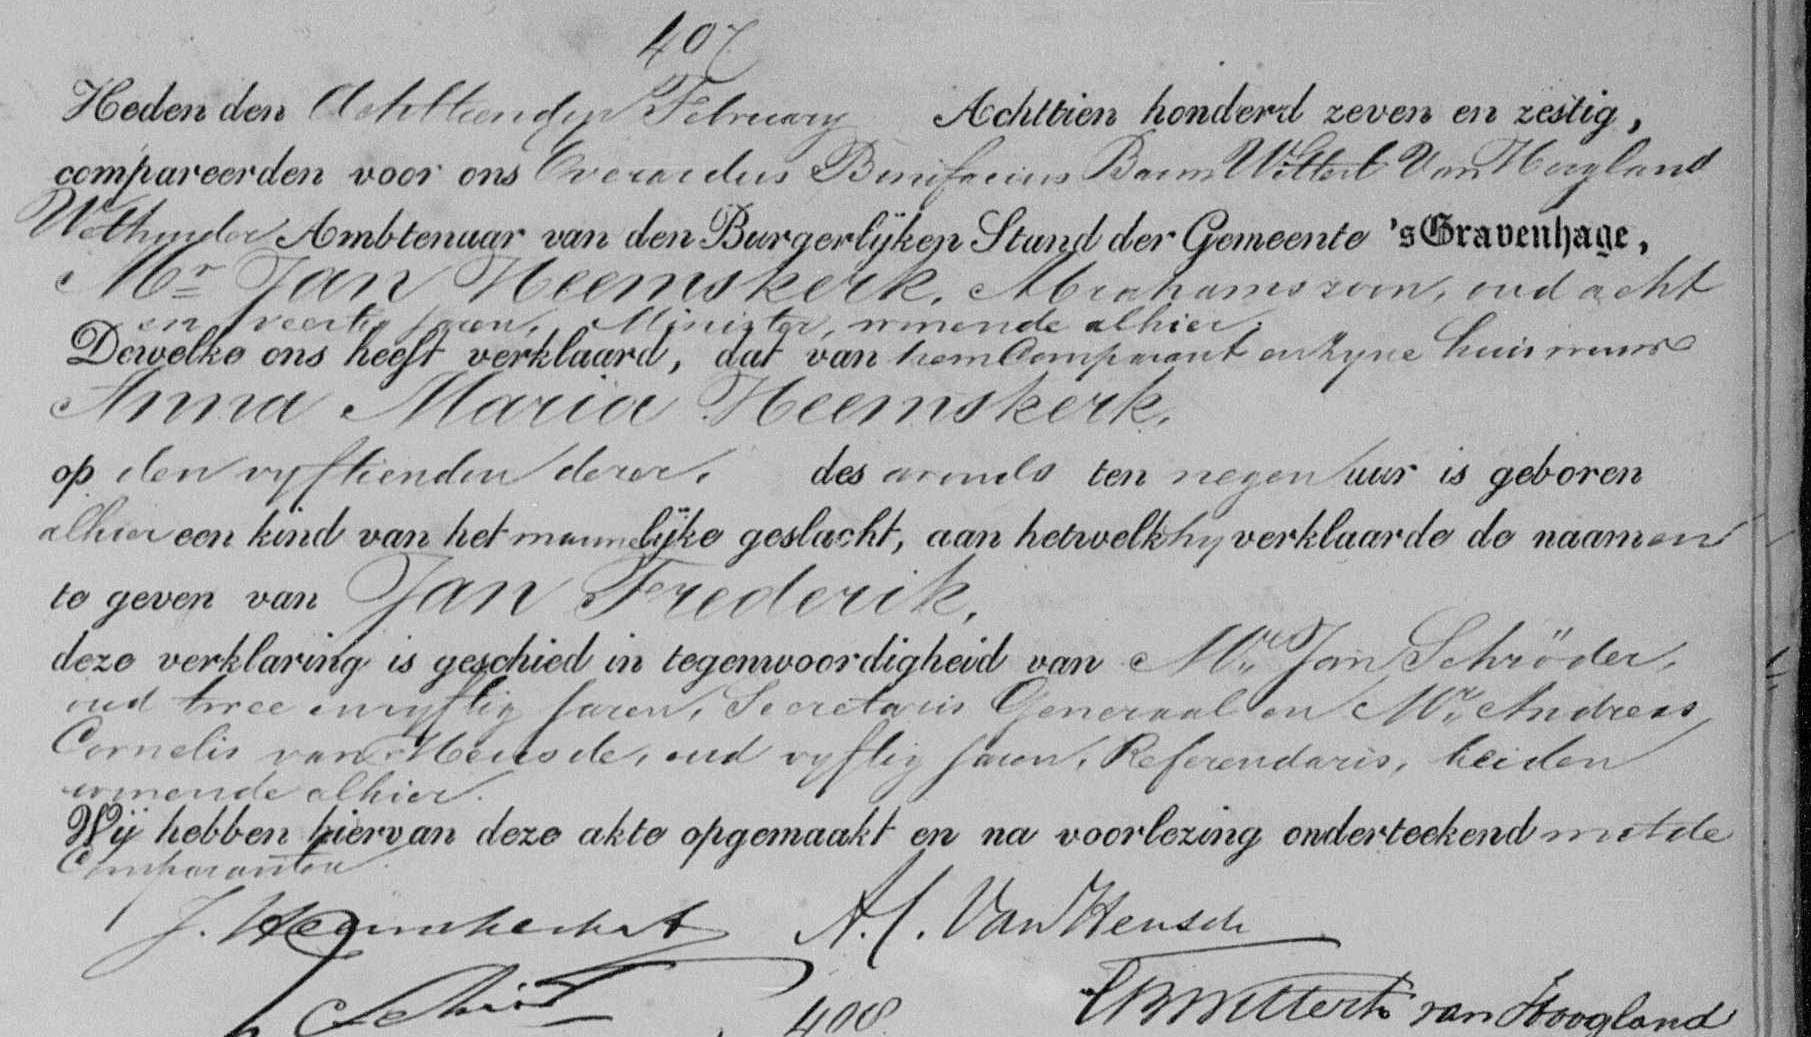 407
Heden den Achttienden February Achttien honderd zeven en zestig,
compareerden voor ons Everardus Bonifacius Baron Wittert Van Hoogland
Wethouder Ambtenaar van den Burgerlijken Stand der Gemeente 's Gravenhage,
Mr Jan Heemskerk, Abrahamszoon, oud acht
en veertig jaren, Minister, wonende alhier,
Dewelke ons heeft verklaard, dat van hem Comparant en zyne huisvrouw
Anna Maria Heemskerk,
op den vyftienden dezer, des avonds ten negen uur is geboren
alhier een kind van het mannelijke geslacht, aan hetwelk hy verklaarde de naamen
te geven van Jan Frederik,
deze verklaring is geschied in tegenwoordigheid van Mr Jan Schröder,
oud twee en vyftig jaren, Secretaris Generaal en Mr Andreas
Cornelis van Heusde, oud vyftig jaren, Referendaris, beiden
wonende alhier.
Wij hebben hiervan deze akte opgemaakt en na voorlezing onderteekend met de
Comparanten
J. Heemskerk A. A.C. Van Heusde
408 EB Wittert van Hoogland